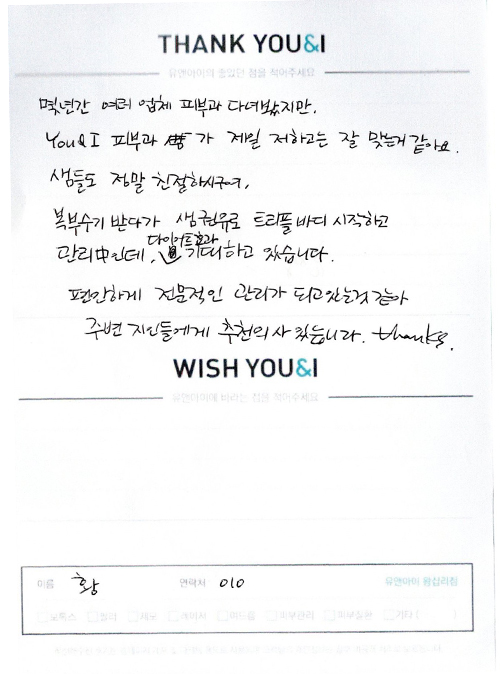 THANK YOU&I
유앤아이의 좋았던 점을 적어주세요
몇년간 여러 업체 피부과 다녀봤지만,
You&I 피부과 가 제일 저하고는 잘 맞는거 같아요.
샘들도 정말 친절하시구여,
복부수기 받다가 샘권유로 트리플바디 시작하고
다이어트효과
관리中인데, 기대하고 있습니다.
편안하게 전문적인 관리가 되고있는거 같아
주변 지인들에게 추천의사 있습니다. thanks.
WISH YOU&I
유앤아이에 바라는 점을 적어주세요
이름 황 연락처 010 유앤아이 왕십리점
보톡스 필러 제모 레이저 여드름 피부관리 피부질환 기타 ( )